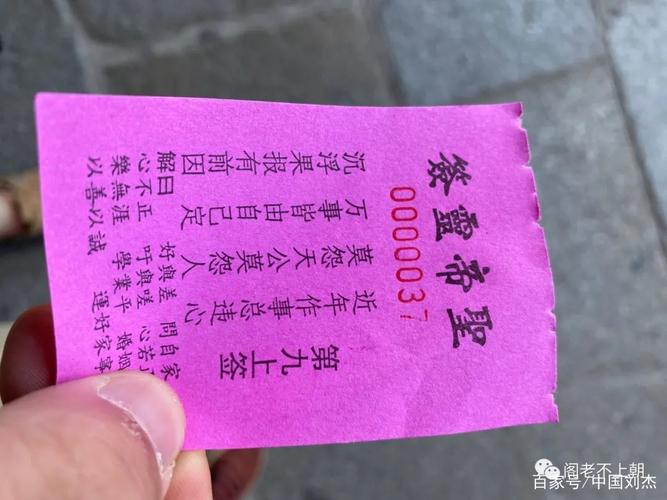 聖帝靈簽
0000037
第九上签
近年作事总违心
莫怨天公莫怨人
万事皆由自己定
沉浮果报有前因
解曰 好與差 問自家
心不正 吁與嗟 心若了
樂無涯 學業平 婚姻
以善以誠 運好家寧
阁老不上朝
百家号/中国刘杰